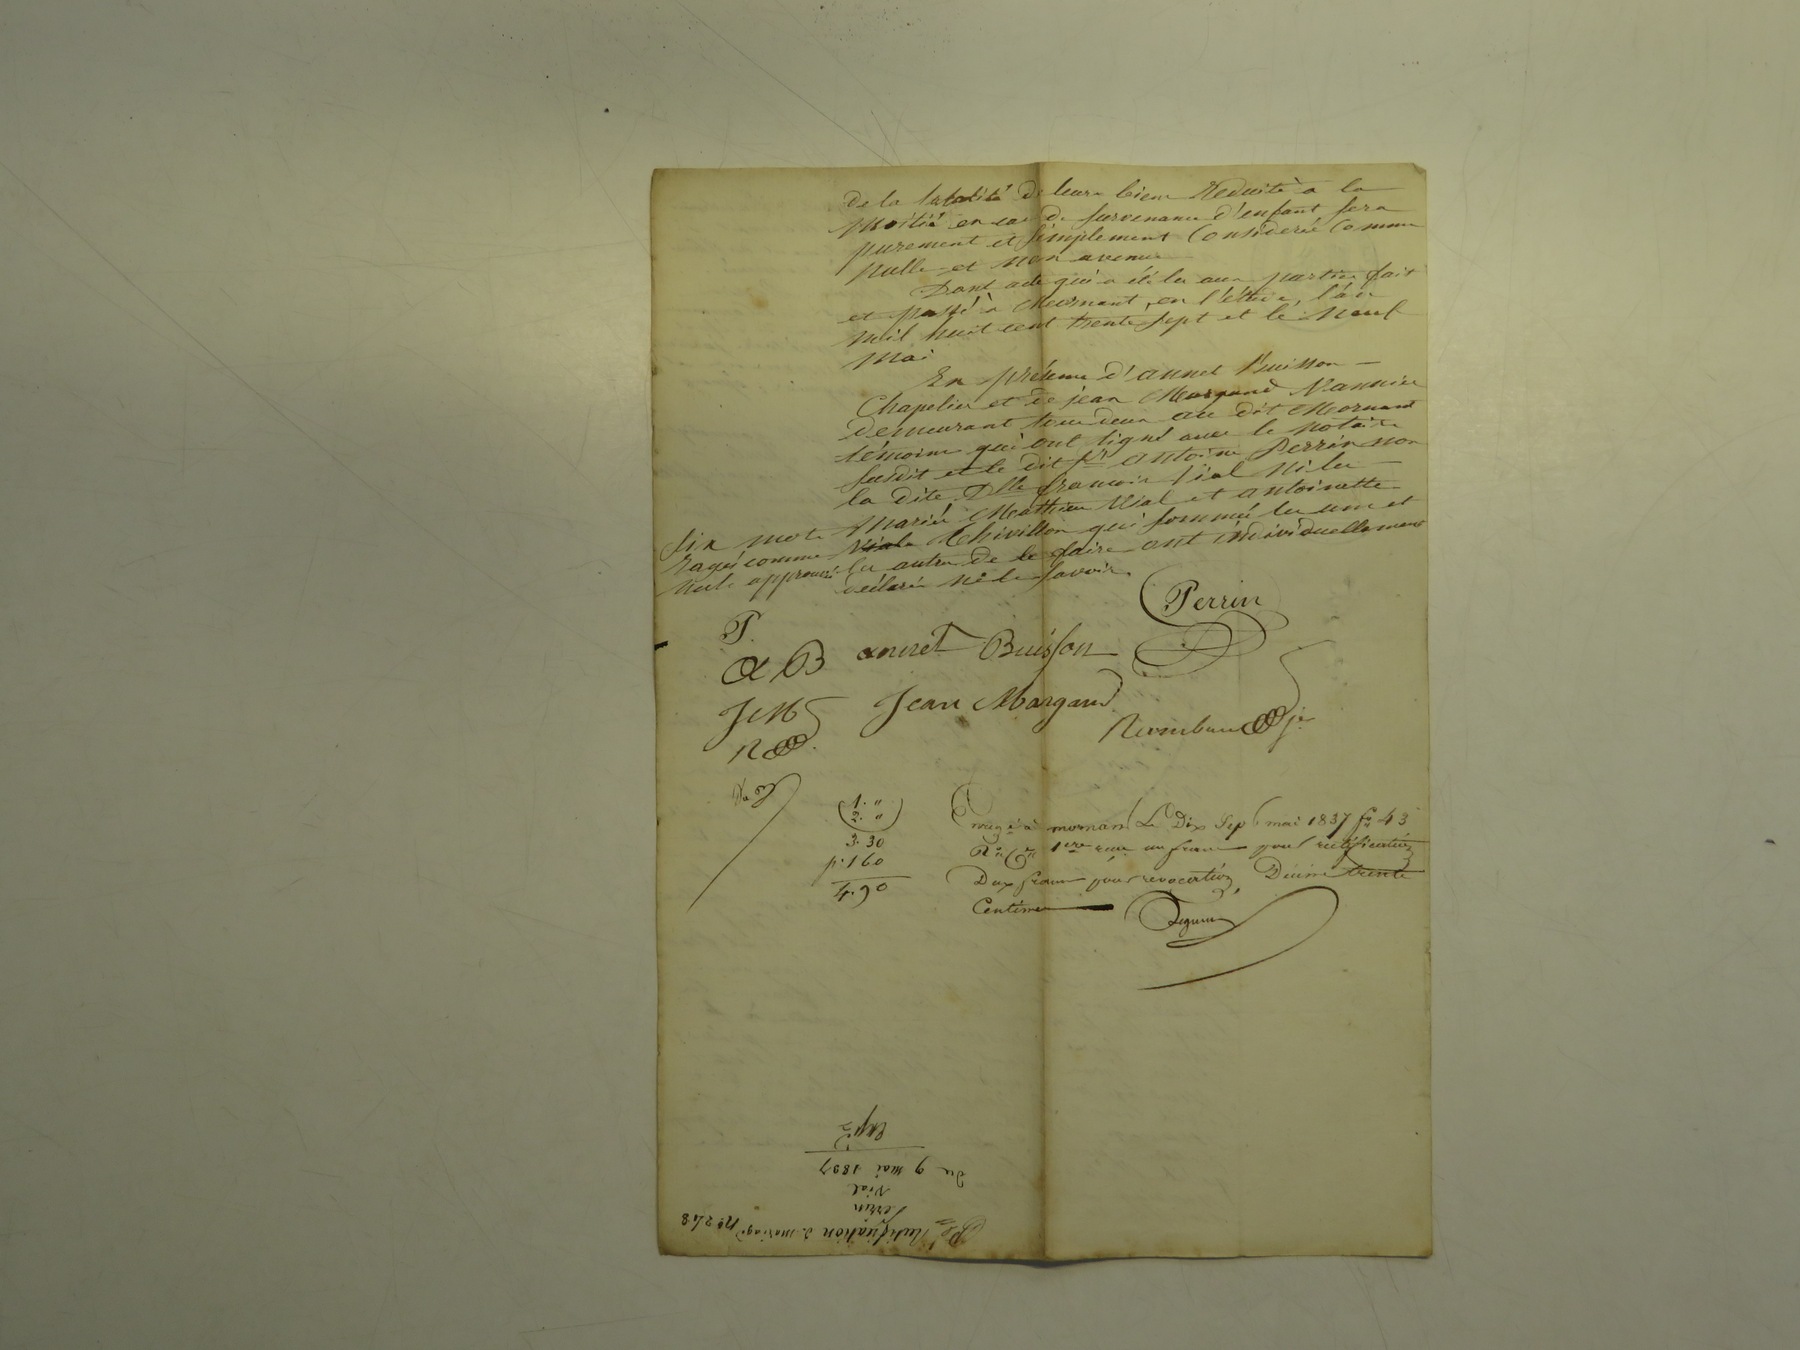 de la totalité de leurs biens Reduite à la
moitié en cas de survenance d'enfant sera
purement et simplement Considerée Comme
nulle et non avenue
Dont acte qui a été lu aux parties fait
et passé à Mornant, en l'étude, l'an
mil huit cent trente sept et le neuf
mai
En présence d'annet Buisson
Chapelier et de jean Margand Vannier
demeurant tous deux au dit Mornant
témoins qui ont signé avec le notaire
susdit et le dit Sr antoine Perrin non
la dite Dlle françoise Vial ni les
mariés Mathieu Vial et antoinette
Viale Chivillon qui sommés les uns et
les autres de le faire ont individuellement
déclaré ne le savoir.
six mots
rayés comme
nuls approuvés
Perrin
P.
a B annet Buisson
J M Jean Margand
R
1. "
2. "
3. 30
p. 1 60
4. 90
à mornant Le Dix Sept mai 1837 fo 43
Ro Co 1ere reçu un franc pour rectification
Deux francs pour revocation, Décime trente
Centimes
Rectification de mariage No 248
Perrin
Vial
Du 9 mai 1837
Expé